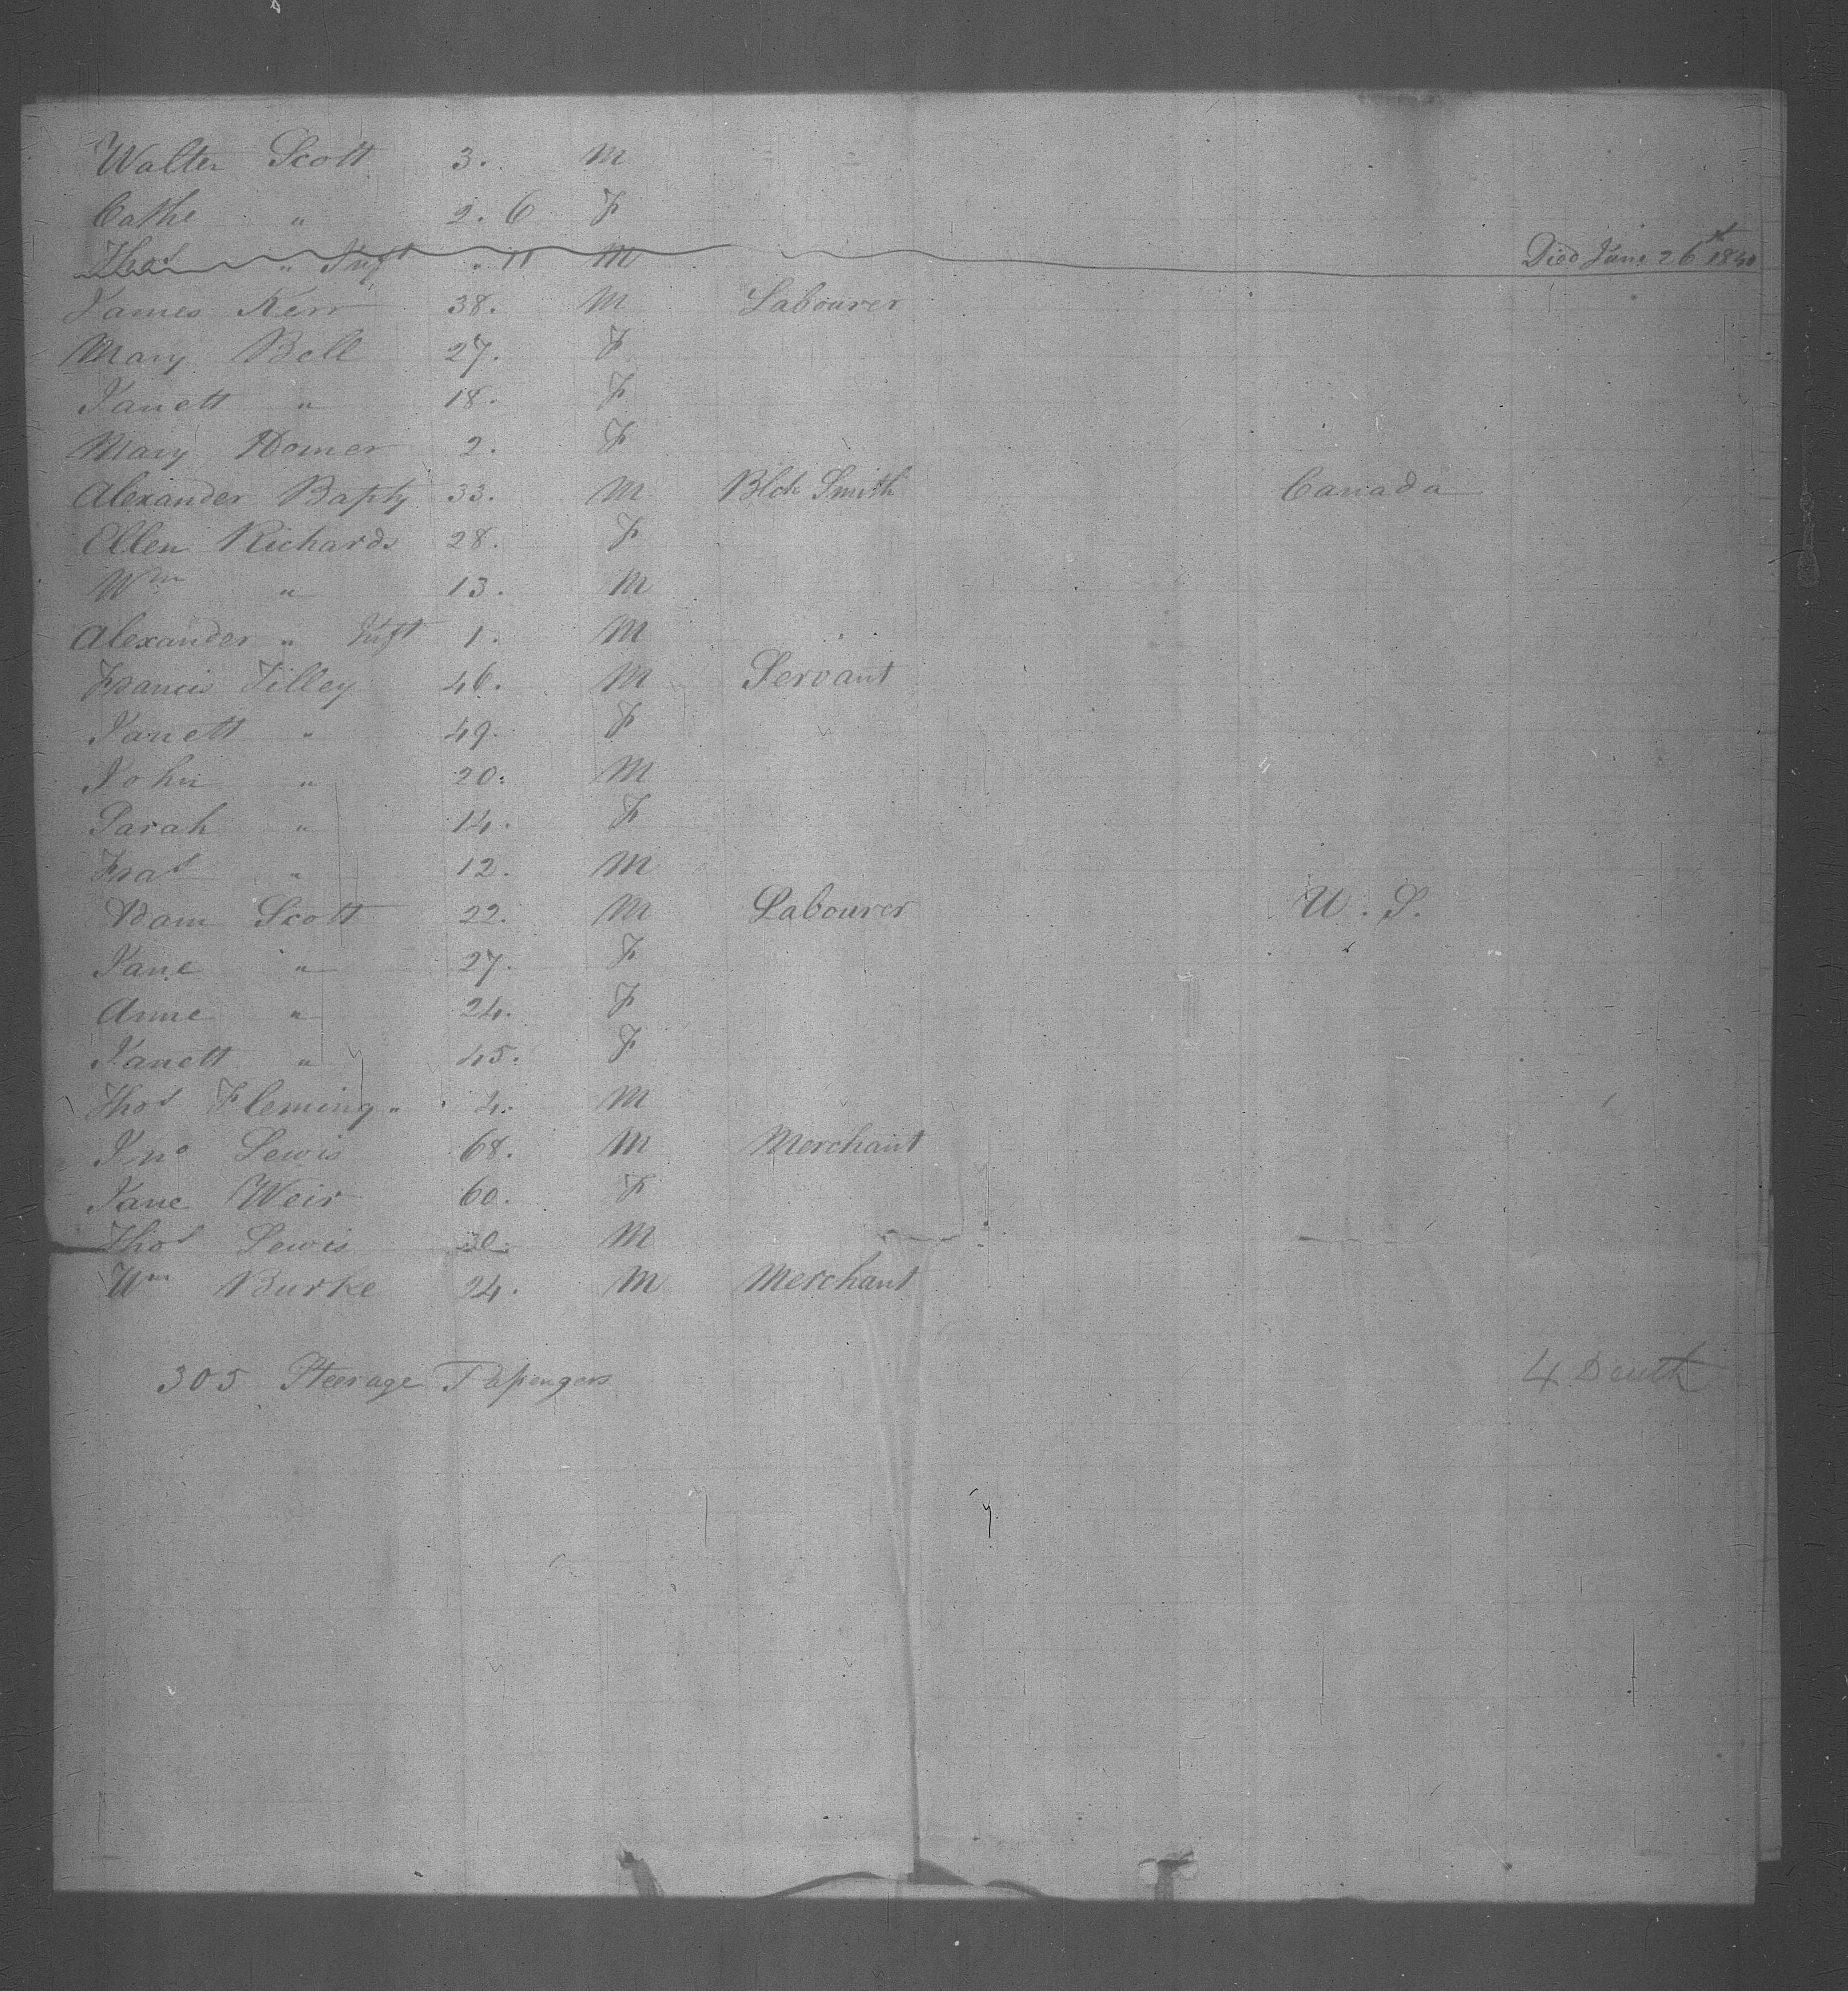 Walter Scott 3. M
Cathe " 2. 6 F
Thos " Inft " 11 M Died June 26th 1840
James Kerr 38. M Labourer
Mary Bell 27. F
Janett " 18. F
Mary Homer 2. F
Alexander Bapty 33. M Blck Smith Canada
Ellen Richards 28. F
Wm " 13. M
Alexander " Inft 1. M
Francis Tilley 46. M Servant
Janett " 49. F
John " 20. M
Sarah " 14. F
Fras " 12. M
Adam Scott 22. M Labourer U. S.
Jane " 27. F
Anne " 24. F
Janett " 45. F
Thos Fleming " 4. M
Jno Lewis 68. M Merchant
Jane Weir 60. F
Thos Lewis 30. M
Wm Burke 24. M Merchant
305 Steerage Passengers 4 Death